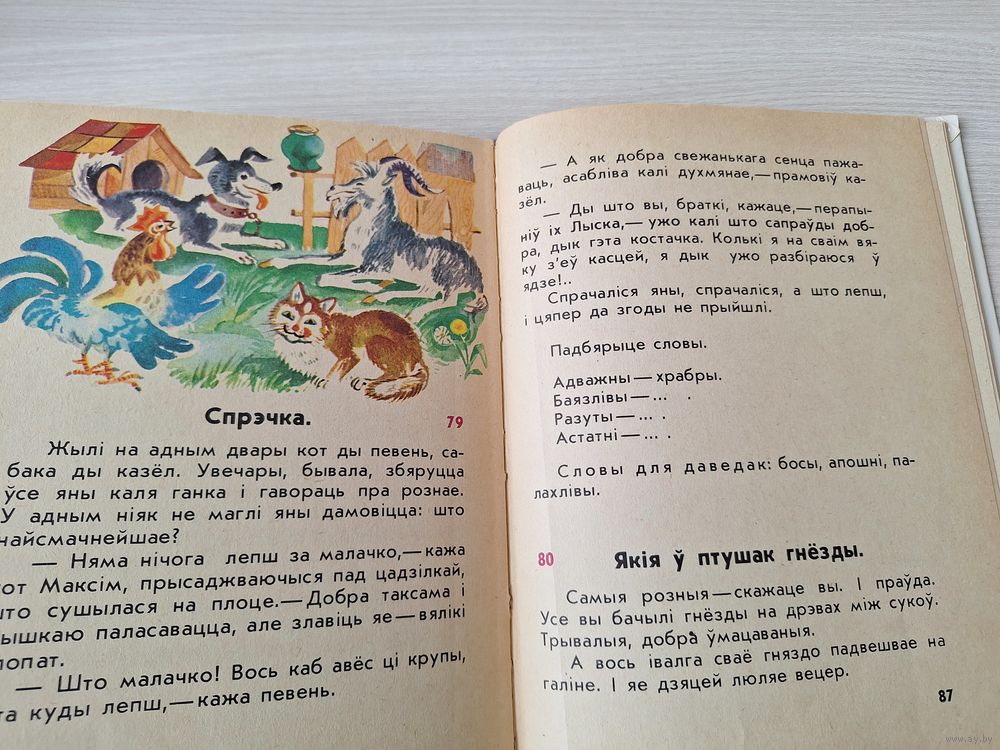 Спрэчка.
79
Жылі на адным двары кот ды певень, са-
бака ды казёл. Увечары, бывала, збяруцца
ўсе яны каля ганка і гавораць пра рознае.
У адным ніяк не маглі яны дамовіцца: што
найсмачнейшае?
— Няма нічога лепш за малачко,— кажа
от Максім, прысаджваючыся пад цадзілкай,
што сушылася на плоце.— Добра таксама і
ышкаю паласавацца, але злавіць яе — вялікі
лопат.
— Што малачко! Вось каб авёс ці крупы,
та куды лепш,— кажа певень.
— А як добра свежанькага сенца пажа-
ваць, асабліва калі духмянае,— прамовіў ка-
зёл.
— Ды што вы, браткі, кажаце,— перапы-
ніў іх Лыска,— ужо калі што сапраўды доб-
ра, дык гэта костачка. Колькі я на сваім вя-
ку з'еў касцей, я дык ужо разбіраюся ў
ядзе!..
Спрачаліся яны, спрачаліся, а што лепш,
і цяпер да згоды не прыйшлі.
Падбярыце словы.
Адважны — храбры.
Баязлівы — ... .
Разуты — ... .
Астатні — ... .
Словы для даведак: босы, апошні, па-
лахлівы.
80
Якія ў птушак гнёзды.
Самыя розныя — скажаце вы. І праўда.
Усе вы бачылі гнёзды на дрэвах між сукоў.
Трывалыя, добра ўмацаваныя.
А вось івалга сваё гняздо падвешвае на
галіне. І яе дзяцей люляе вецер.
87
www.ay.by